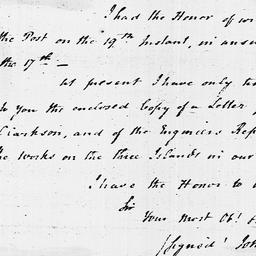 I had the Honor of wr
the Post on the 19th Instant, in answ
the 17th —
at present I have only to
h you the enclosed Copy of a Letter f
Clarkson, and of the Engineers Rep
the works on the three Islands in our
I have the Honor to
Sir
Your Most Obt
(Signed) Joh